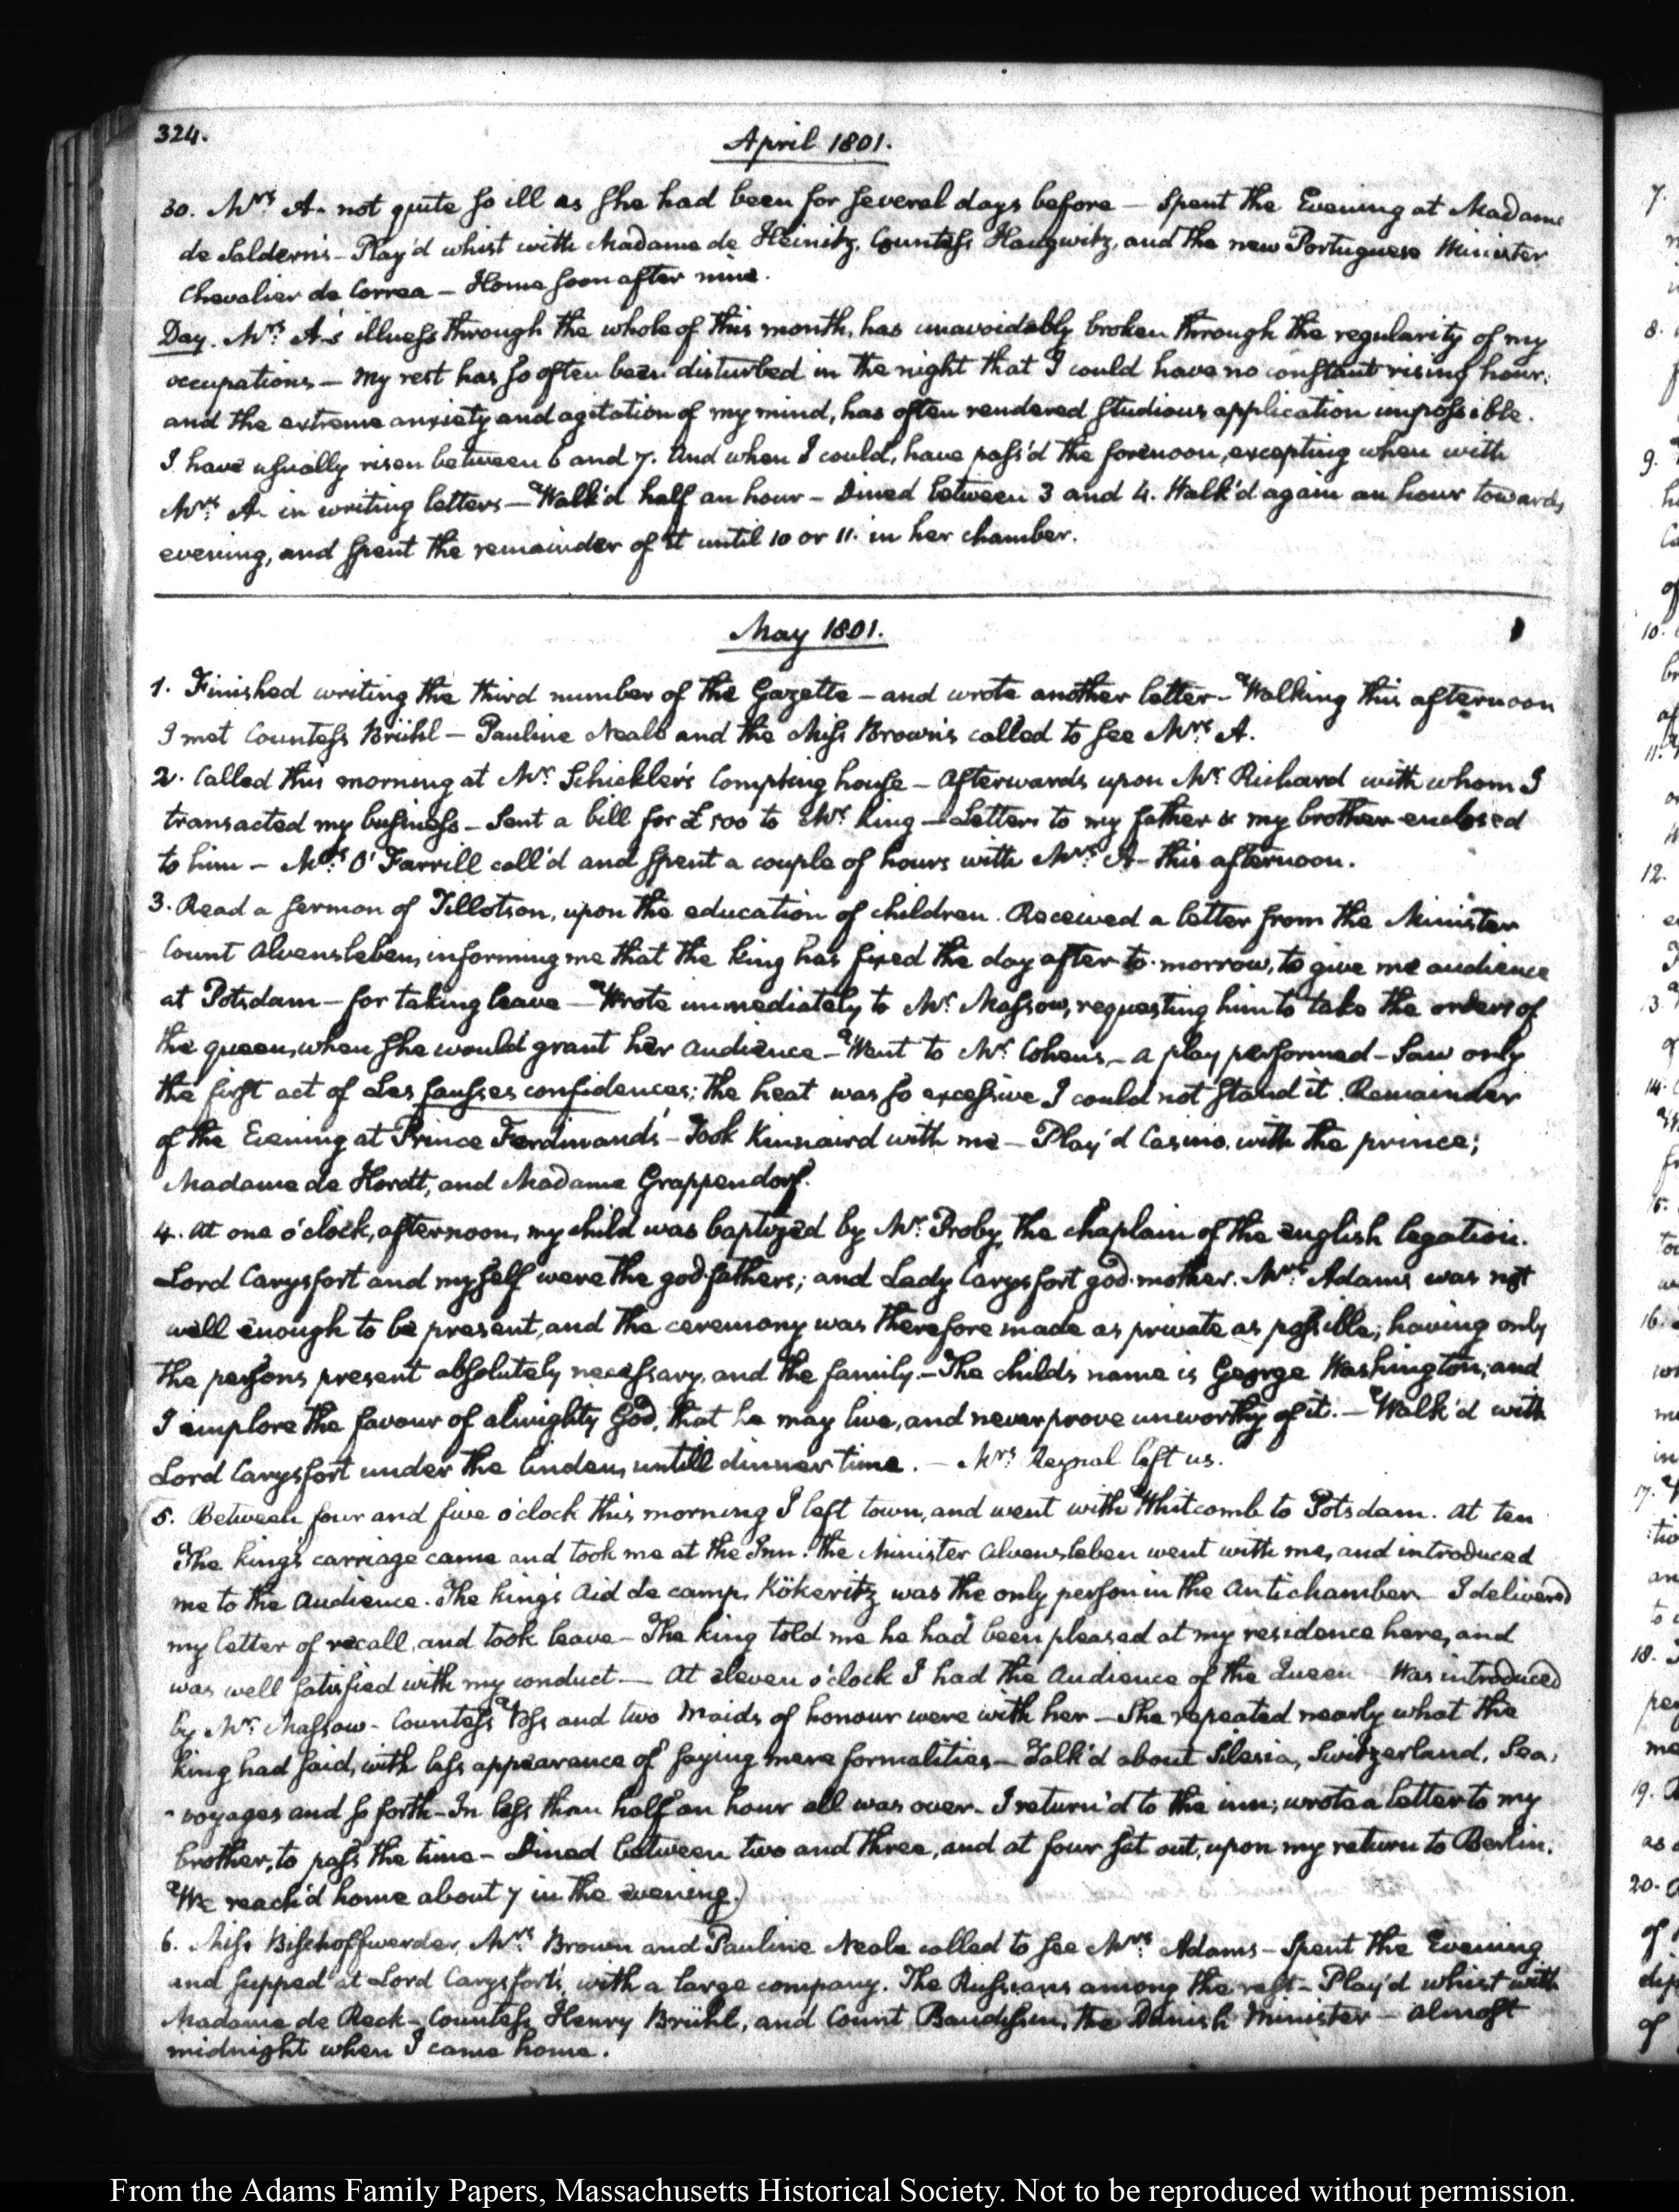 324.
April 1801.
30. Mrs. A. not quite so ill as she had been for several days before — Spent the Evening at Madame
de Saldern's — Play'd whist with Madame de Heinitz, Countess Haugwitz, and the new Portuguese Minister
Chevalier de Correa — Home soon after nine.
Day. Mrs. A.'s illness through the whole of this month, has unavoidably broken through the regularity of my
occupations — My rest has so often been disturbed in the night that I could have no constant rising hour:
and the extreme anxiety and agitation of my mind, has often rendered studious application impossible.
I have usually risen between 6 and 7. And when I could, have pass'd the forenoon, excepting when with
Mrs. A. in writing letters — Walk'd half an hour — Dined between 3 and 4. Walk'd again an hour towards
evening, and spent the remainder of it until 10 or 11. in her chamber.
May 1801.
1. Finished writing the third number of the Gazette — and wrote another letter — Walking this afternoon
I met Countess Brühl — Pauline Neale and the Miss Brown's called to see Mrs. A.
2. Called this morning at Mr. Schickler's Compting house — Afterwards upon Mr. Richard with whom I
transacted my business — Sent a bill for £500 to Mr. King — Letters to my father & my brother enclosed
to him — Mrs. O'Farrill call'd and spent a couple of hours with Mrs. A — this afternoon.
3. Read a sermon of Tillotson, upon the education of children. Received a letter from the Minister
Count Alvensleben, informing me that the King has fixed the day after to-morrow, to give me audience
at Potsdam — for taking leave — Wrote immediately to Mr. Massow, requesting him to take the orders of
the queen, when she would grant her audience — Went to Mr. Cohen's — a play performed — Saw only
the first act of Les fausses confidences; the heat was so excessive I could not stand it. Remainder
of the Evening at Prince Ferdinand's — Took Kinnaird with me — Play'd Casino with the prince;
Madame de Hordt, and Madame Grappendorf.
4. At one o'clock, afternoon, my child was baptized by Mr. Proby, the chaplain of the english legation.
Lord Carysfort and myself were the god-fathers; and Lady Carysfort god-mother. Mrs. Adams was not
well enough to be present, and the ceremony was therefore made as private as possible; having only
the persons present absolutely necessary, and the family. — The child's name is George Washington; and
I implore the favour of almighty God, that he may live, and never prove unworthy of it. — Walk'd with
Lord Carysfort under the lindens, untill dinner time. — Mrs. Reynal left us.
(5. Between four and five o'clock this morning I left town, and went with Whitcomb to Potsdam. At ten
The King's carriage came and took me at the Inn. The Minister Alvensleben went with me, and introduced
me to the Audience. The King's Aid de camp, Kökeritz was the only person in the Antichamber. I delivered
my letter of recall, and took leave — The King told me he had been pleased at my residence here, and
was well satisfied with my conduct — At eleven o'clock I had the Audience of the Queen — Was introduced
by Mr. Massow — Countess Voss and two Maids of honour were with her — She repeated nearly what the
King had said, with less appearance of saying mere formalities — Talk'd about Silesia, Switzerland, Sea-
-voyages and so forth — In less than half an hour all was over. I return'd to the inn; wrote a letter to my
brother, to pass the time — Dined between two and three, and at four set out, upon my return to Berlin.
We reach'd home about 7 in the evening.)
6. Miss Bischoffwerder, Mrs. Brown and Pauline Neale called to see Mrs. Adams — Spent the Evening
and supped at Lord Carysfort's, with a large company. The Russians among the rest — Play'd whist with
Madame de Reck — Countess Henry Brühl, and Count Baudissin, the Danish Minister — almost
midnight when I came home.
From the Adams Family Papers, Massachusetts Historical Society. Not to be reproduced without permission.